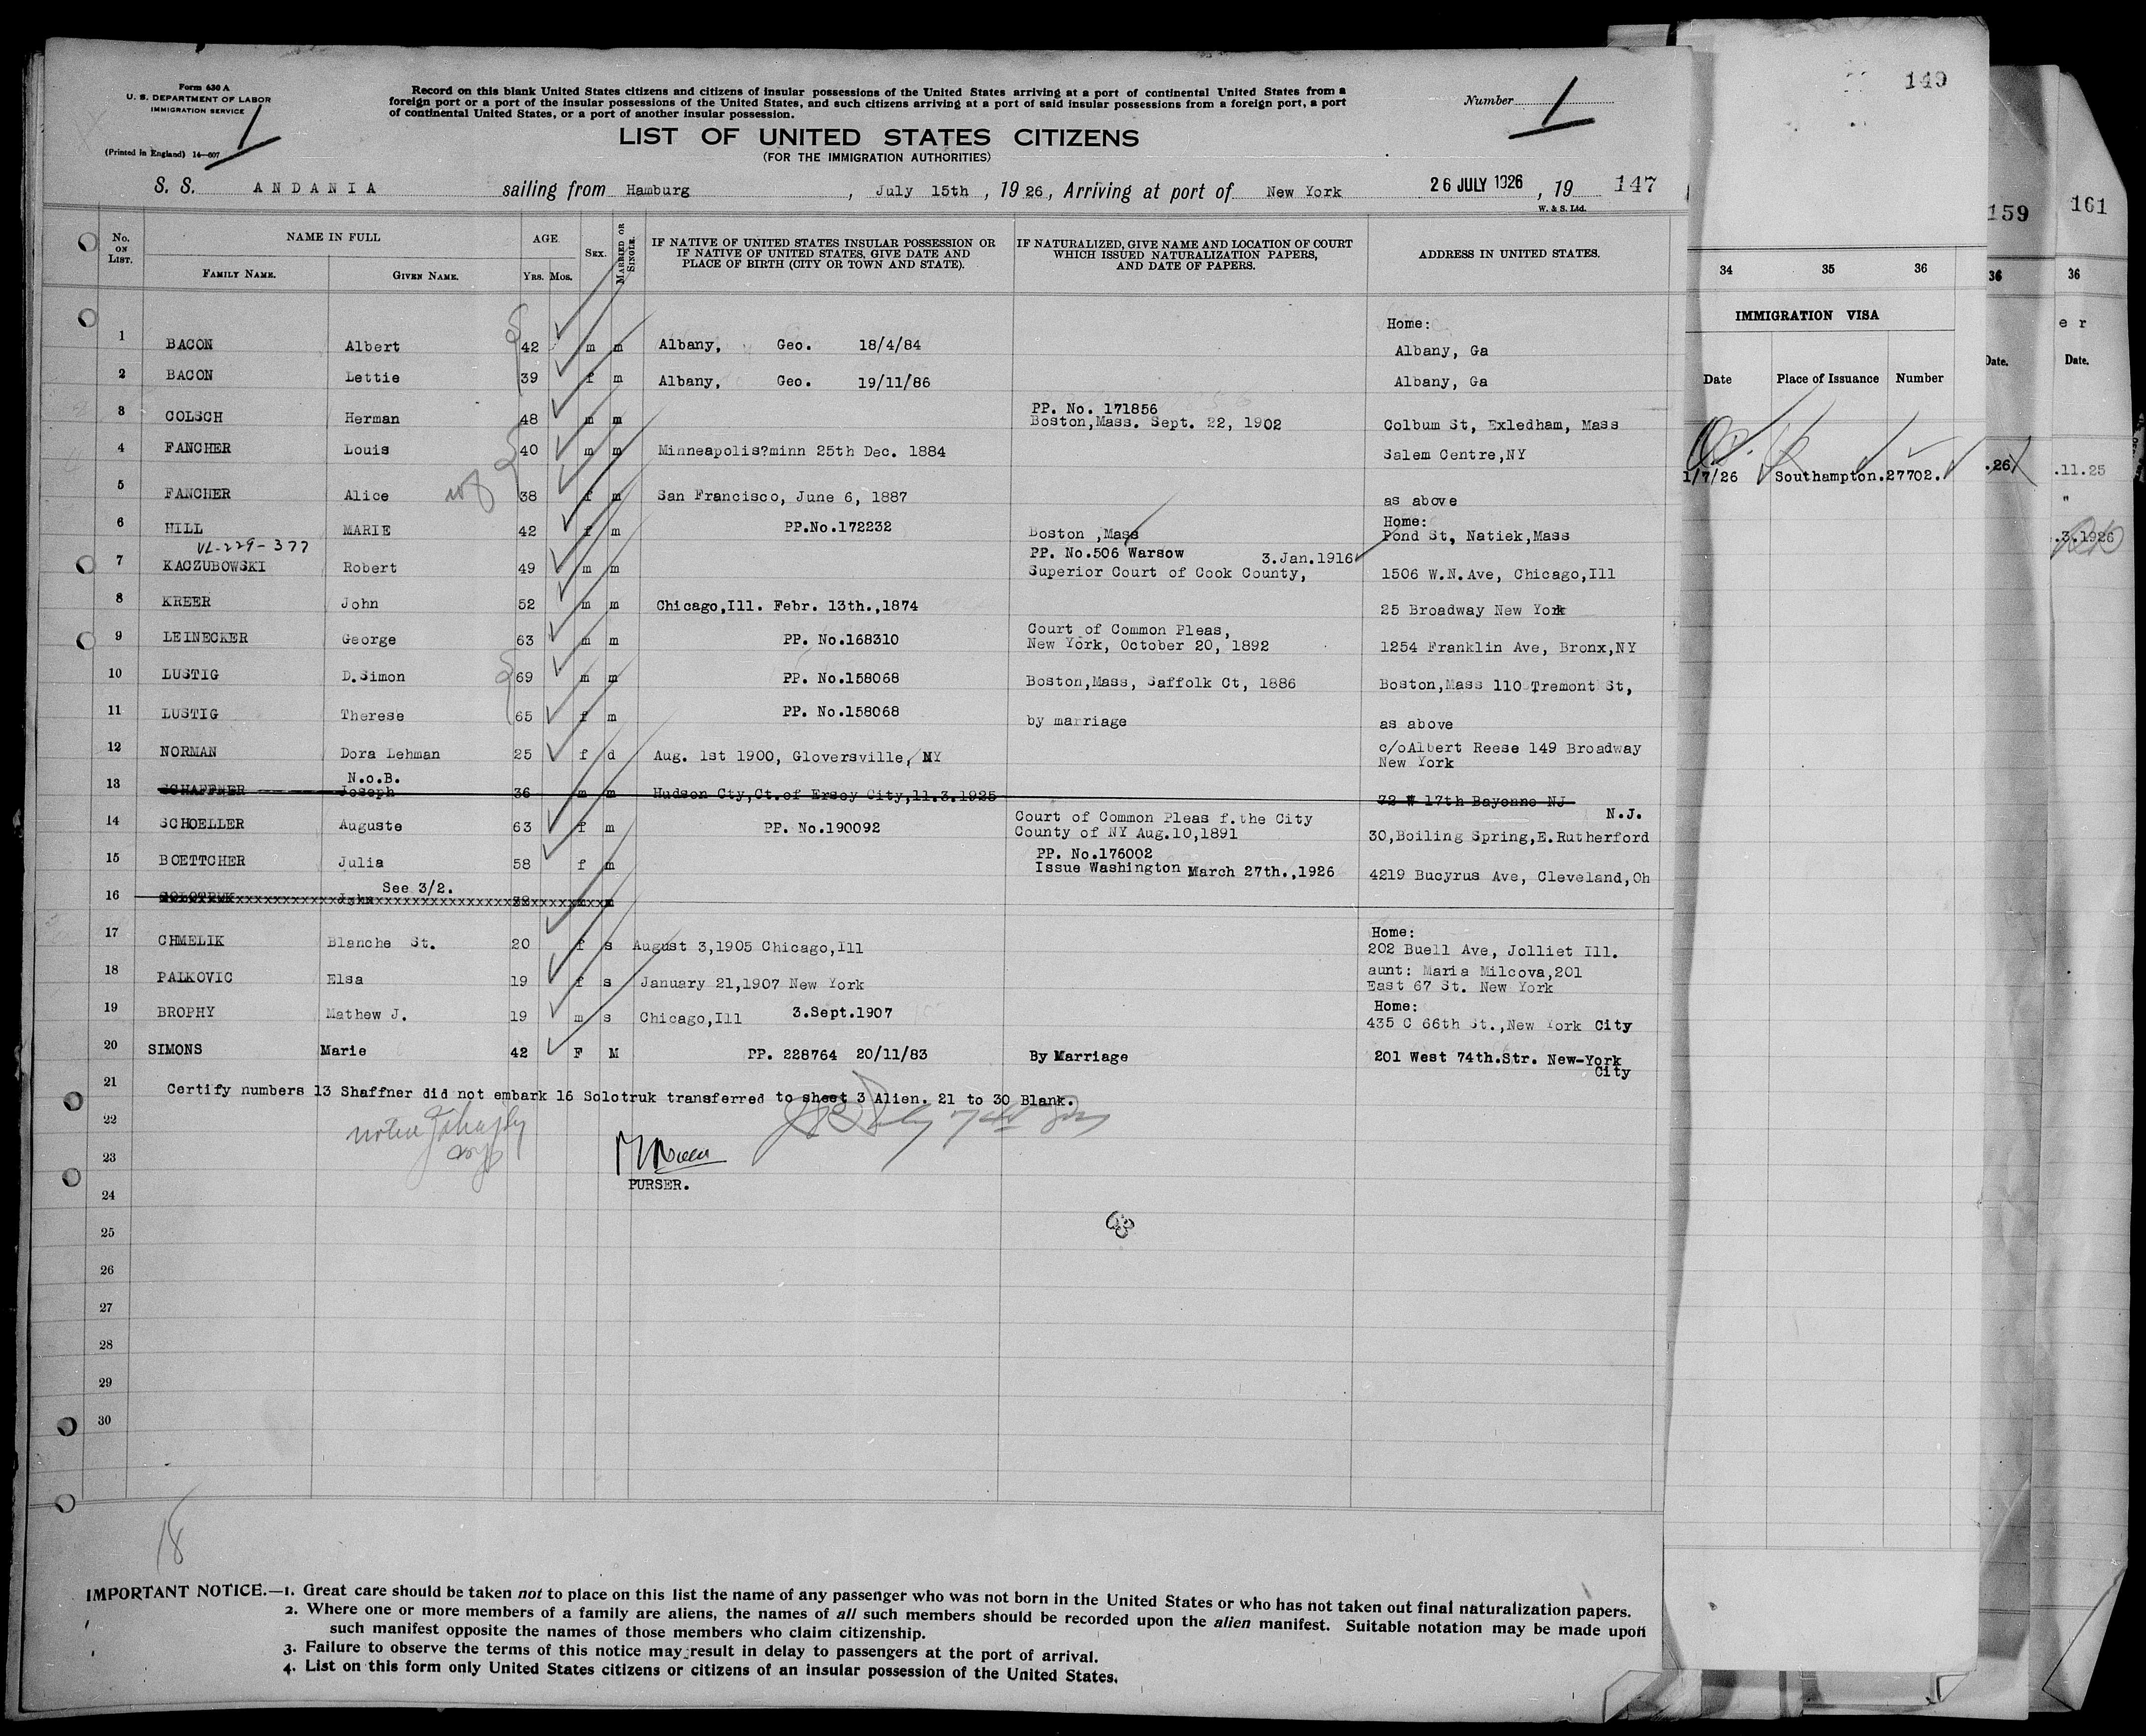 Form 630 A
U. S. DEPARTMENT OF LABOR
IMMIGRATION SERVICE
1
(Printed in England) 14—607
Record on this blank United States citizens and citizens of insular possessions of the United States arriving at a port of continental United States from a
foreign port or a port of the insular possessions of the United States, and such citizens arriving at a port of said insular possessions from a foreign port, a port
of continental United States, or a port of another insular possession.
Number 1
LIST OF UNITED STATES CITIZENS
(FOR THE IMMIGRATION AUTHORITIES)
S. S. ANDANIA sailing from Hamburg, July 15th, 1926, Arriving at port of New York 26 JULY 1926, 19 147
W. & S. Ltd.
No. ON LIST. NAME IN FULL AGE. SEX. MARRIED OR SINGLE. IF NATIVE OF UNITED STATES INSULAR POSSESSION OR IF NATIVE OF UNITED STATES, GIVE DATE AND PLACE OF BIRTH (CITY OR TOWN AND STATE). IF NATURALIZED, GIVE NAME AND LOCATION OF COURT WHICH ISSUED NATURALIZATION PAPERS, AND DATE OF PAPERS. ADDRESS IN UNITED STATES.
FAMILY NAME. GIVEN NAME. YRS. MOS.
Home:
1 BACON Albert 42 m m Albany, Geo. 18/4/84 Albany, Ga
2 BACON Lettie 39 f m Albany, Geo. 19/11/86 Albany, Ga
PP. No. 171856
3 COLSCH Herman 48 m m Boston,Mass. Sept. 22, 1902 Colbum St, Exledham, Mass
4 FANCHER Louis 40 m m Minneapolis?minn 25th Dec. 1884 Salem Centre,NY
5 FANCHER Alice 38 f m San Francisco, June 6, 1887 as above
Home:
6 HILL MARIE 42 f m PP.No.172232 Boston ,Mass Pond St, Natiek,Mass
VL-229-377 PP. No.506 Warsow 3.Jan.1916
7 KACZUBOWSKI Robert 49 m m Superior Court of Cook County, 1506 W.N.Ave, Chicago,Ill
8 KREER John 52 m m Chicago,Ill. Febr. 13th.,1874 25 Broadway New York
Court of Common Pleas,
9 LEINECKER George 63 m m PP. No.168310 New York, October 20, 1892 1254 Franklin Ave, Bronx,NY
10 LUSTIG D.Simon 69 m m PP. No.158068 Boston,Mass, Saffolk Ct, 1886 Boston,Mass 110 Tremont St,
11 LUSTIG Therese 65 f m PP. No.158068 by marriage as above
12 NORMAN Dora Lehman 25 f d Aug. 1st 1900, Gloversville, NY c/oAlbert Reese 149 Broadway
New York
N.o.B.
13 SCHAFFNER Joseph 36 m m Hudson Cty,Ct.of Ersey City,11.3.1925 72 W 17th Bayonne NJ
N.J.
Court of Common Pleas f.the City
14 SCHOELLER Auguste 63 f m PP. No.190092 County of NY Aug.10,1891 30,Boiling Spring,E.Rutherford
PP. No.176002
15 BOETTCHER Julia 58 f m Issue Washington March 27th.,1926 4219 Bucyrus Ave, Cleveland,Oh
See 3/2.
16 SOLOTRUK John 32 m m
Home:
17 CHMELIK Blanche St. 20 f s August 3,1905 Chicago,Ill 202 Buell Ave, Jolliet Ill.
aunt: Maria Milcova,201
18 PALKOVIC Elsa 19 f s January 21,1907 New York East 67 St. New York
Home:
19 BROPHY Mathew J. 19 m s Chicago,Ill 3.Sept.1907 435 C 66th St.,New York City
20 SIMONS Marie 42 F M PP. 228764 20/11/83 By Marriage 201 West 74th.Str. New-York
City
21 Certify numbers 13 Shaffner did not embark 16 Solotruk transferred to sheet 3 Alien. 21 to 30 Blank.
22
23
PURSER.
24
25
26
27
28
29
30
18
IMPORTANT NOTICE.—1. Great care should be taken not to place on this list the name of any passenger who was not born in the United States or who has not taken out final naturalization papers.
2. Where one or more members of a family are aliens, the names of all such members should be recorded upon the alien manifest. Suitable notation may be made upon
such manifest opposite the names of those members who claim citizenship.
3. Failure to observe the terms of this notice may result in delay to passengers at the port of arrival.
4. List on this form only United States citizens or citizens of an insular possession of the United States.
149
34 35 36
IMMIGRATION VISA
Date Place of Issuance Number
1/7/26 Southampton. 27702.
159
36
Date.
.26
161
36
e r
Date.
.11.25
"
.3.1926